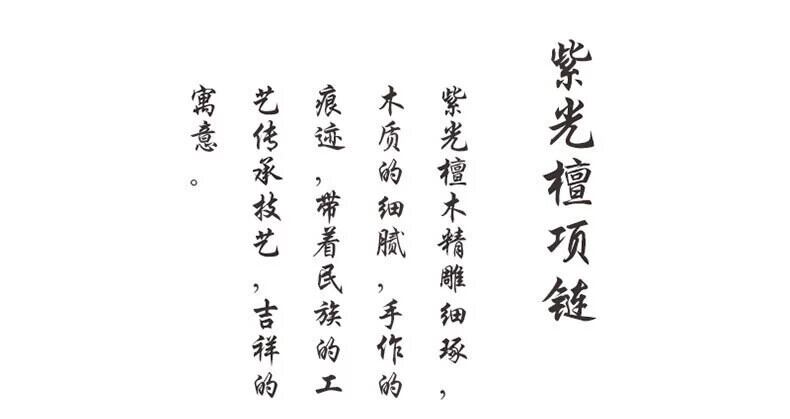 紫光檀项链
紫光檀木精雕细琢，
木质的细腻，手作的
痕迹，带着民族的工
艺传承技艺，吉祥的
寓意。